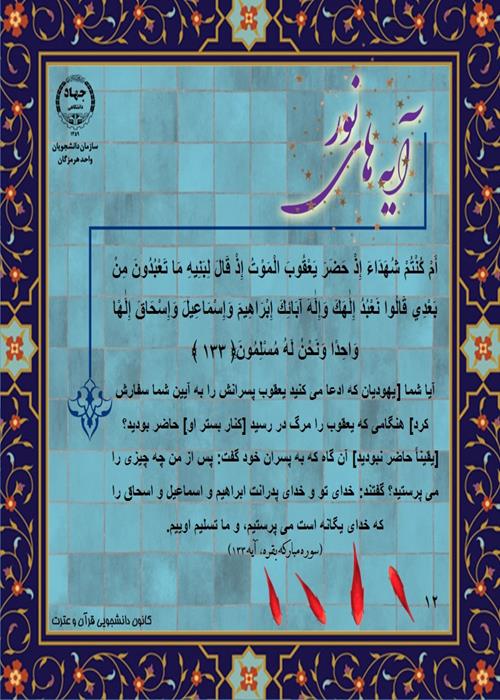 جهاد
دانشگاهی
۱۳۵۹
سازمان دانشجویان
واحد هرمزگان
آیه های نور
أَمْ كُنْتُمْ شُهَدَاءَ إِذْ حَضَرَ يَعْقُوبَ الْمَوْتُ إِذْ قَالَ لِبَنِيهِ مَا تَعْبُدُونَ مِنْ
بَعْدِي قَالُوا نَعْبُدُ إِلَٰهَكَ وَإِلَٰهَ آبَائِكَ إِبْرَاهِيمَ وَإِسْمَاعِيلَ وَإِسْحَاقَ إِلَٰهًا
وَاحِدًا وَنَحْنُ لَهُ مُسْلِمُونَ﴿ ۱۳۳ ﴾
آیا شما [یهودیان که ادعا می کنید یعقوب پسرانش را به آیین شما سفارش
کرد] هنگامی که یعقوب را مرگ در رسید [کنار بستر او] حاضر بودید؟
[یقیناً حاضر نبودید] آن گاه که به پسران خود گفت: پس از من چه چیزی را
می پرستید؟ گفتند: خدای تو و خدای پدرانت ابراهیم و اسماعیل و اسحاق را
که خدای یگانه است می پرستیم، و ما تسلیم اوییم.
(سوره مبارکه بقره، آیه ۱۳۳)
۱۲
کانون دانشجویی قرآن و عترت